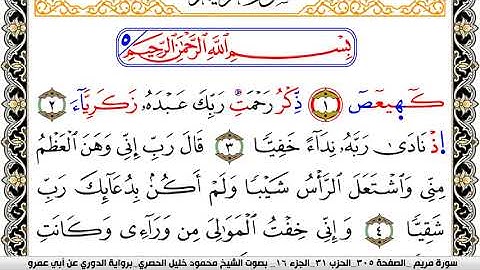 بِسْمِ اللَّهِ الرَّحْمَٰنِ الرَّحِيمِ
كَهيعَصَ ١ ذِّكْرُ رَحْمَتِ رَبِّكَ عَبْدَهُۥ زَكَرِيَّآءَ ٢
إِذ نَّادَىٰ رَبَّهُۥ نِدَآءً خَفِيًّا ٣ قَالَ رَبِّ إِنِّى وَهَنَ الْعَظْمُ
مِنِّى وَاشْتَعَلَ الرَّأْسُ شَيْبًا وَلَمْ أَكُنۢ بِدُعَآئِكَ رَبِّ
شَقِيًّا ٤ وَإِنِّى خِفْتُ الْمَوَٰلِىَ مِن وَرَآءِى وَكَانَتِ
سورة مريم _الصفحة ٣٠٥_الحزب ٣١_الجزء ١٦_ بصوت الشيخ محمود خليل الحصري_برواية الدوري عن أبي عمرو